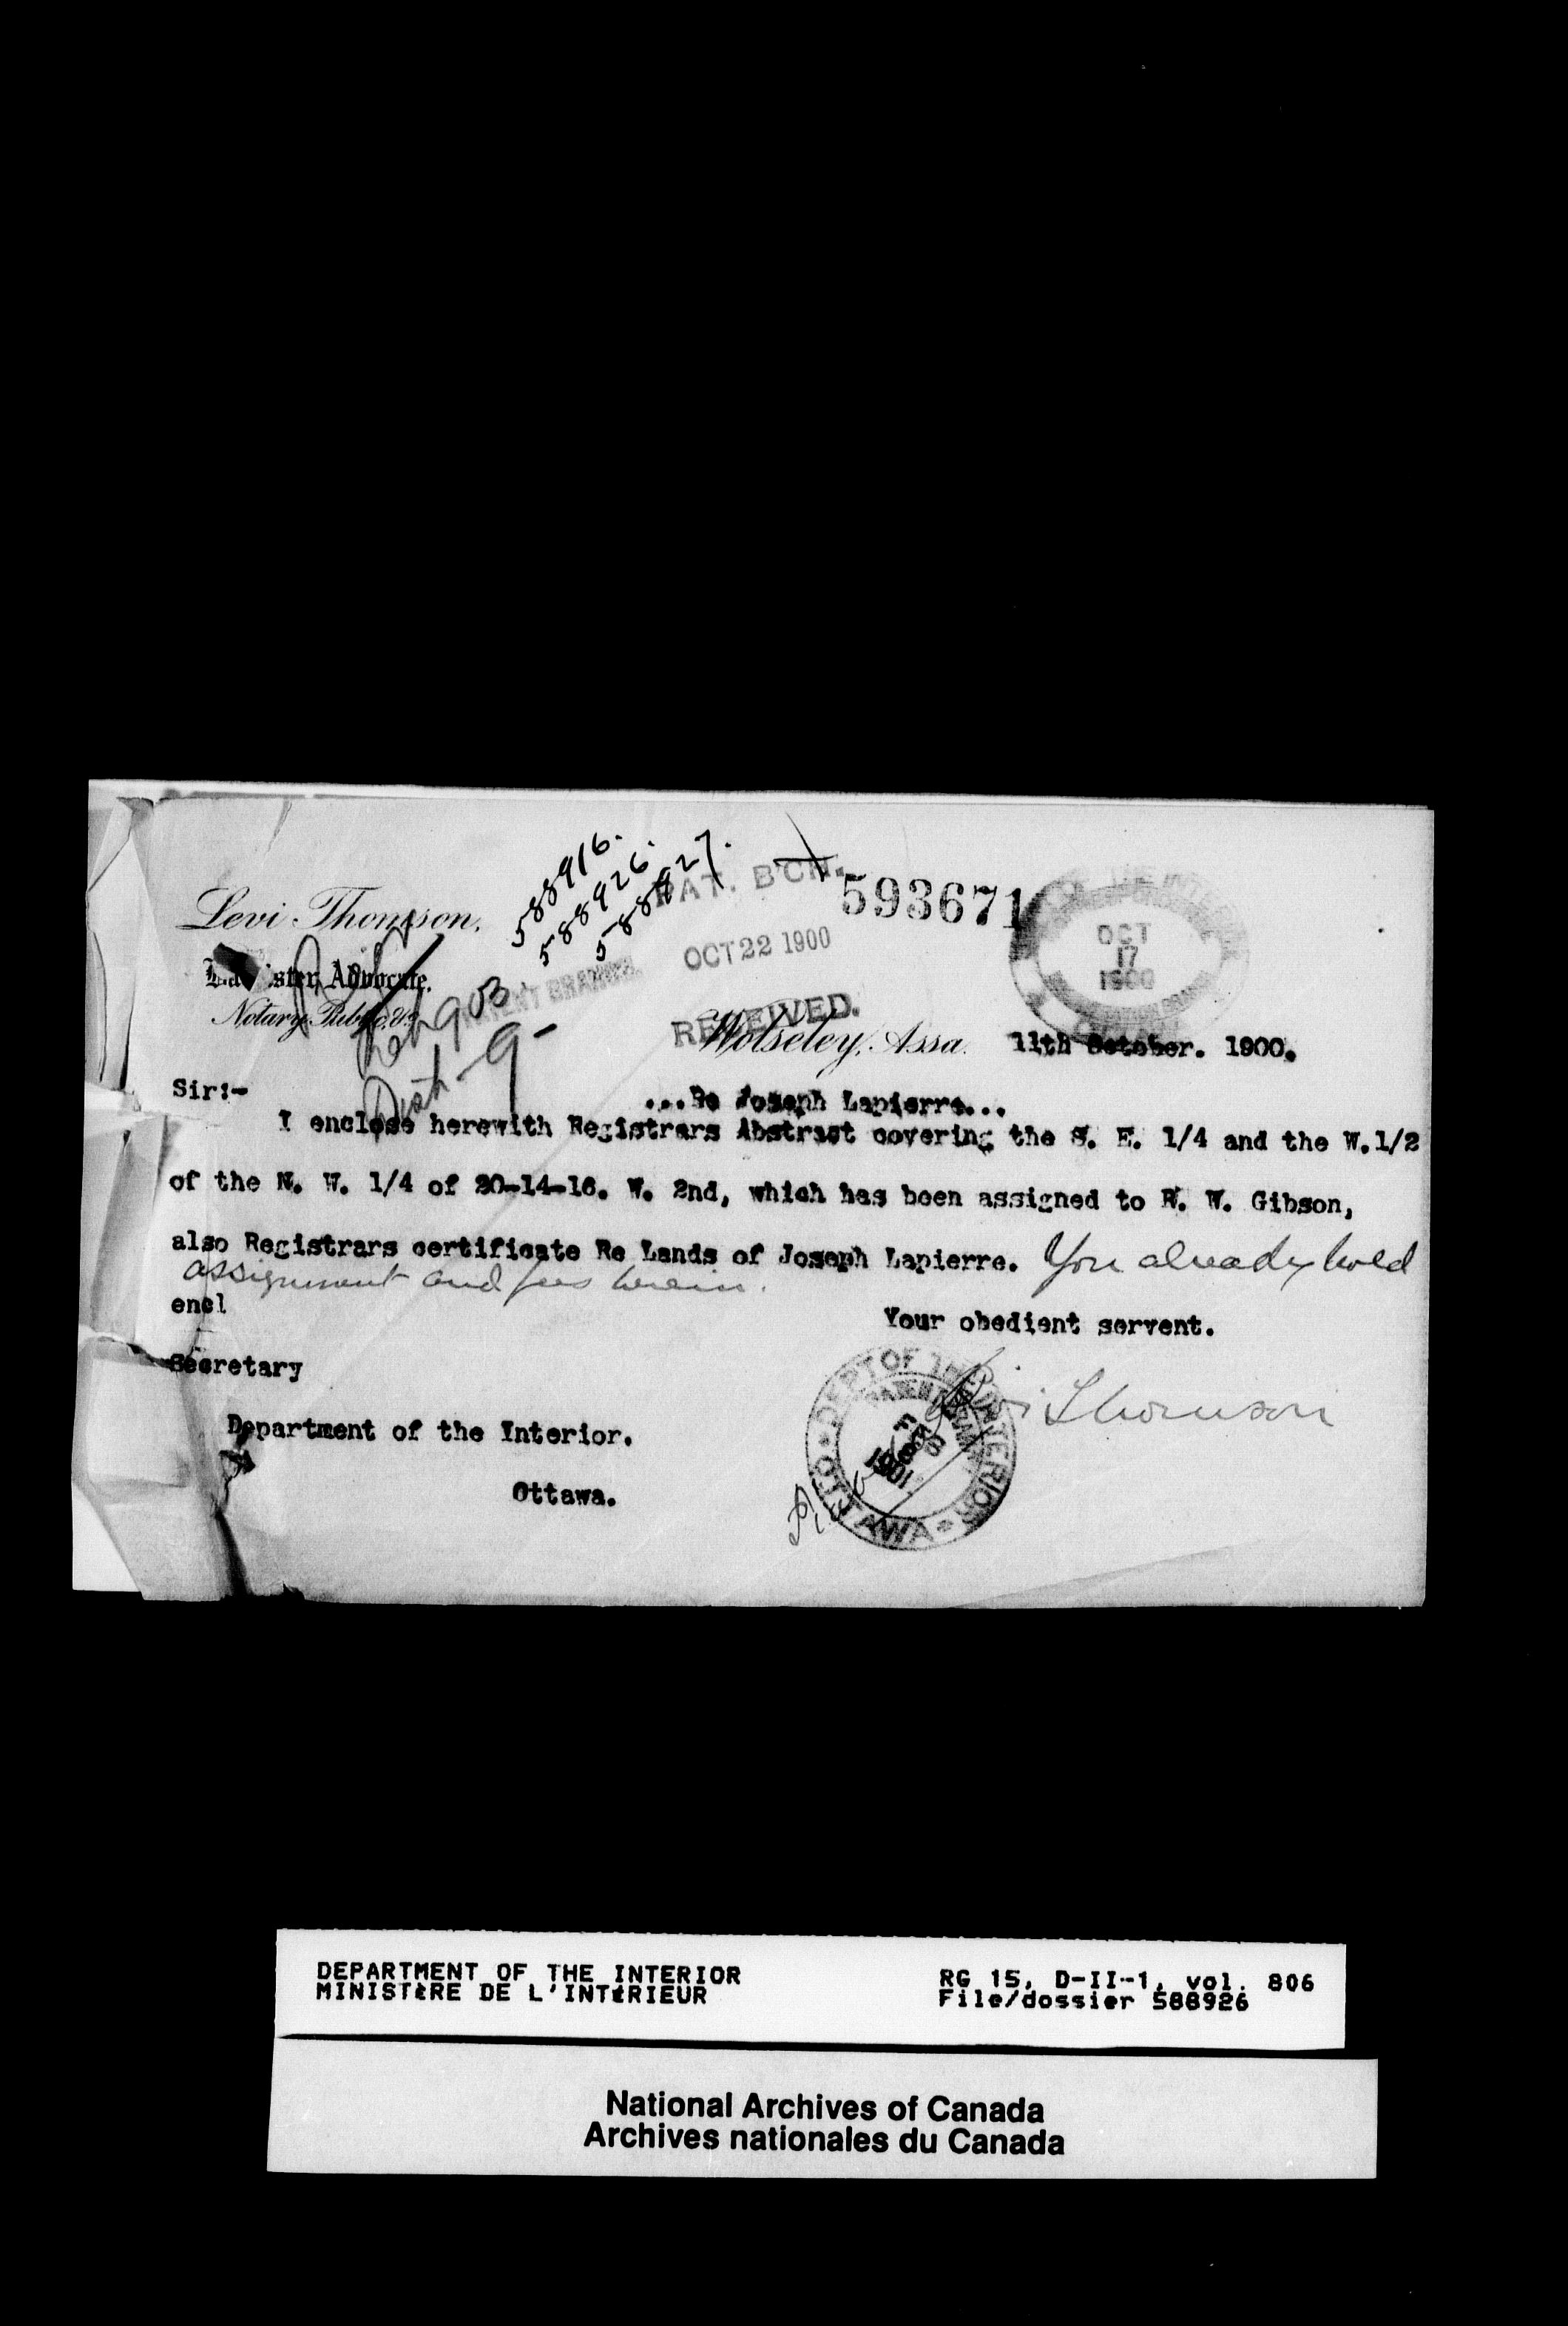 588916.
588926.
588927.
PAT. B'CH.
593671
Levi Thomson,
OCT 22 1900
OCT
17
1900
Barrister, Advocate,
PATENT BRANCH.
Notary Public, &c.
RECEIVED.
Wolseley, Assa. 11th October. 1900.
Sir:-
...Re Joseph Lapierre...
I enclose herewith Registrars Abstract covering the S. E. 1/4 and the W.1/2
of the N. W. 1/4 of 20-14-16. W. 2nd, which has been assigned to R. W. Gibson,
also Registrars certificate Re Lands of Joseph Lapierre. You already hold
assignment and fees herein.
encl
Your obedient servent.
Secretary
Levi Thomson
Department of the Interior.
Ottawa.
DEPT OF THE INTERIOR
OTTAWA
1901
DEPARTMENT OF THE INTERIOR
MINISTÈRE DE L'INTÉRIEUR
RG 15, D-II-1, vol. 806
File/dossier 588926
National Archives of Canada
Archives nationales du Canada